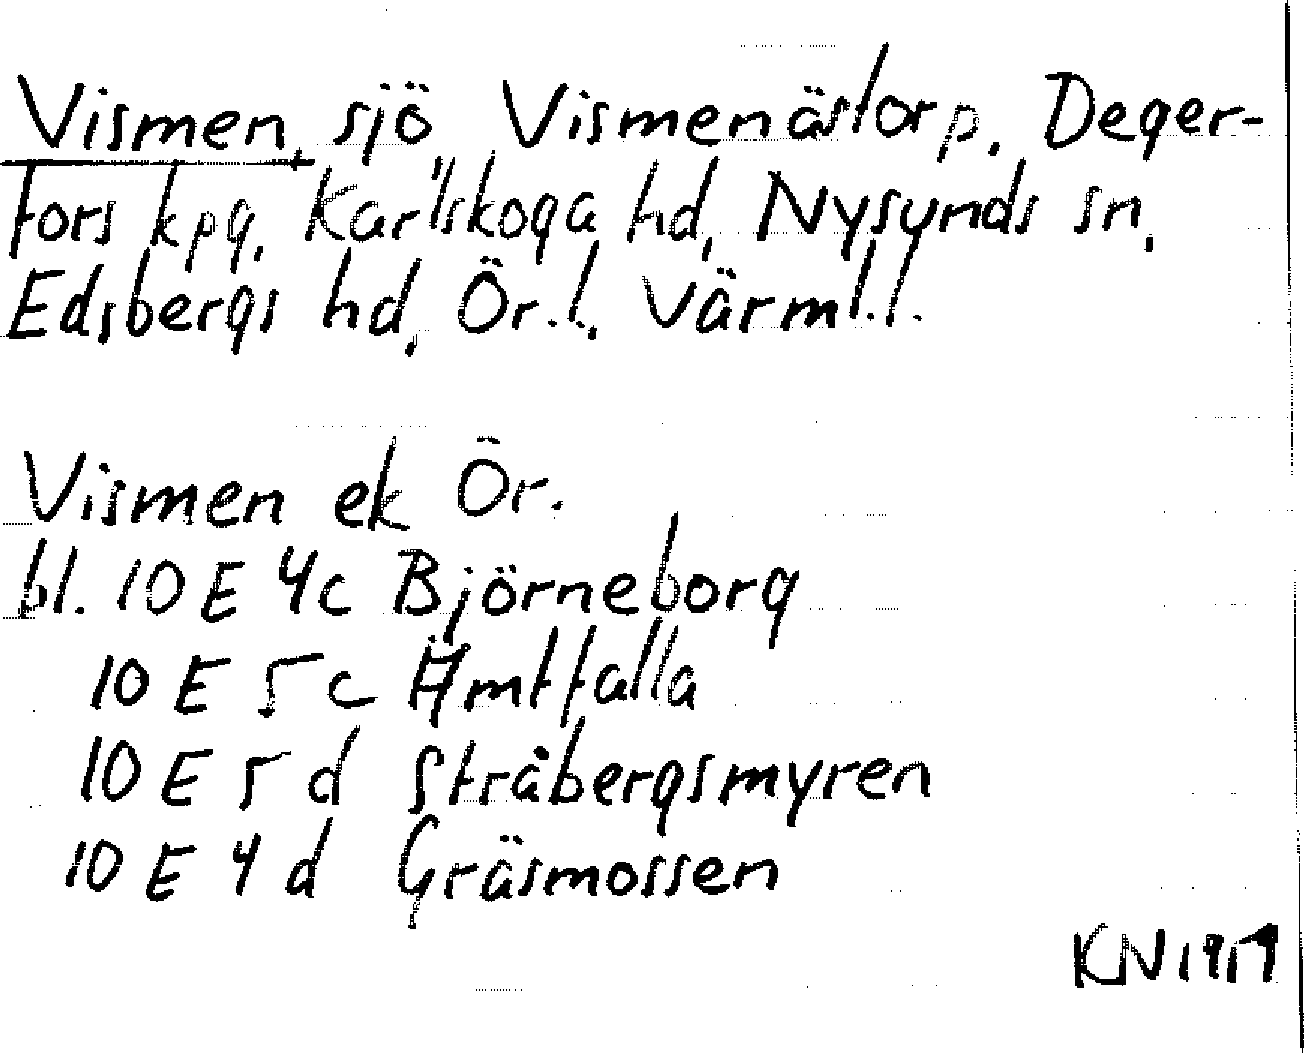 Vismen, sjö, Vismenästorp, Deger-
fors kpg, Karlskoga hd, Nysunds sn,
Edsbergs hd, Ör.l. Värml.l.
Vismen ek Ör.
bl. 10 E 4c Björneborg
10 E 5 c Ämtfalla
10 E 5 d Stråbergsmyren
10 E 4 d Gräsmossen
KN